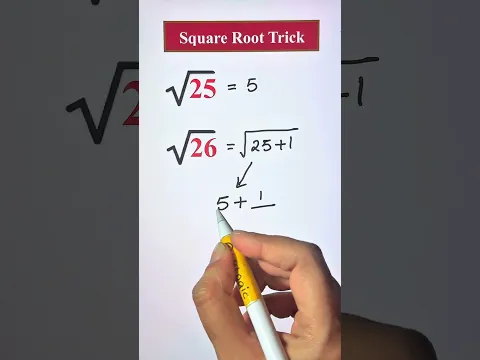 Square Root Trick
√25 = 5
√26 = √25+1
5 + 1